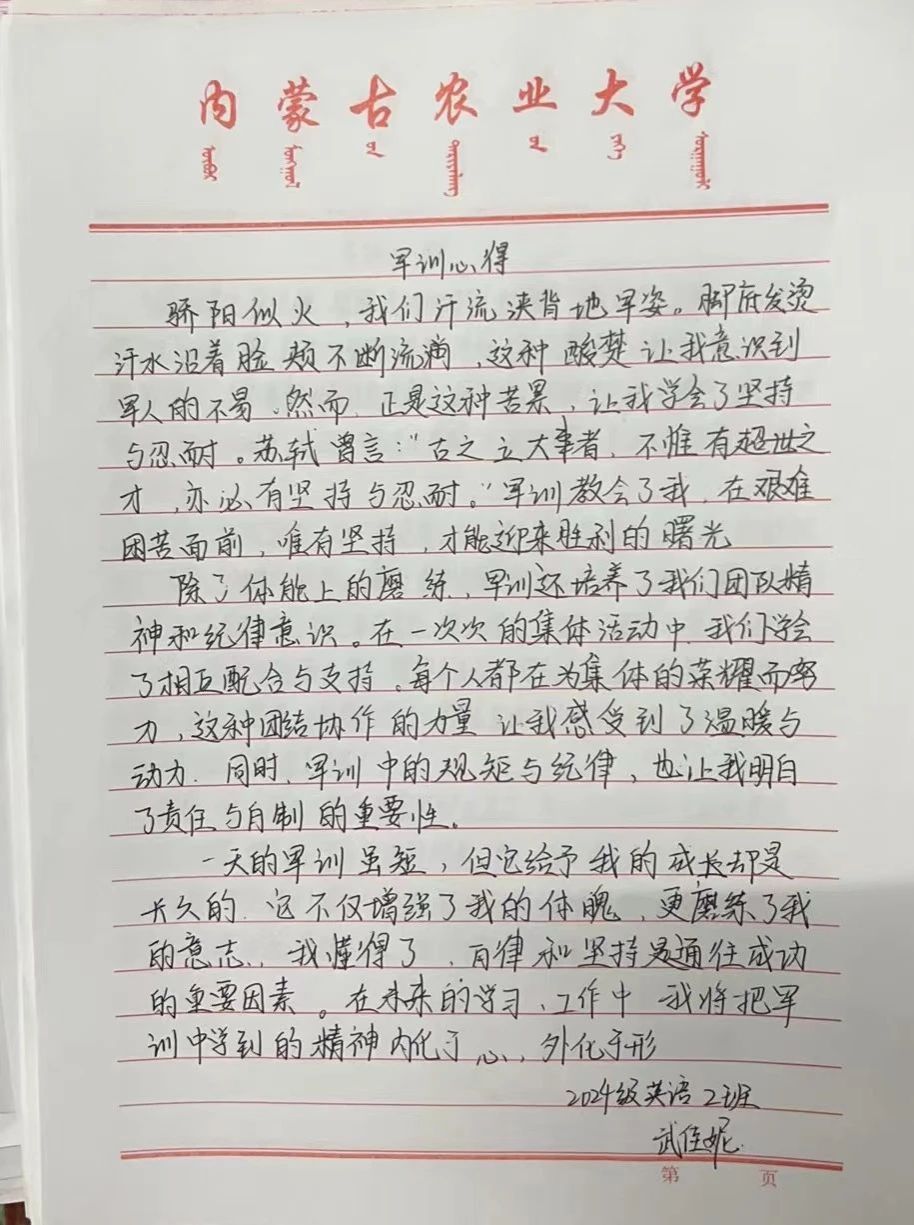 内蒙古农业大学
军训心得
骄阳似火,我们汗流浃背地军姿。脚底发烫
汗水沿着脸颊不断流淌,这种酸楚让我意识到
军人的不易。然而,正是这种苦累,让我学会了坚持
与忍耐。苏轼曾言:“古之立大事者,不惟有超世之
才,亦必有坚持与忍耐。”军训教会了我,在艰难
困苦面前,唯有坚持,才能迎来胜利的曙光
除了体能上的磨练,军训还培养了我们团队精
神和纪律意识。在一次次的集体活动中,我们学会
了相互配合与支持。每个人都在为集体的荣耀而努
力,这种团结协作的力量让我感受到了温暖与
动力.同时,军训中的规矩与纪律,也让我明白
了责任与自制的重要性。
一天的军训虽短,但它给予我的成长却是
长久的.它不仅增强了我的体魄,更磨练了我
的意志,我懂得了,自律和坚持是通往成功
的重要因素。在未来的学习、工作中 我将把军
训中学到的精神内化于心,外化于形
2024级英语2班
武佳妮.
第 页